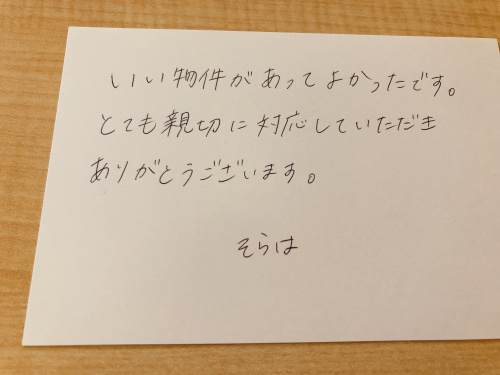 いい物件があってよかったです。
とても親切に対応していただき
ありがとうございます。
そらは